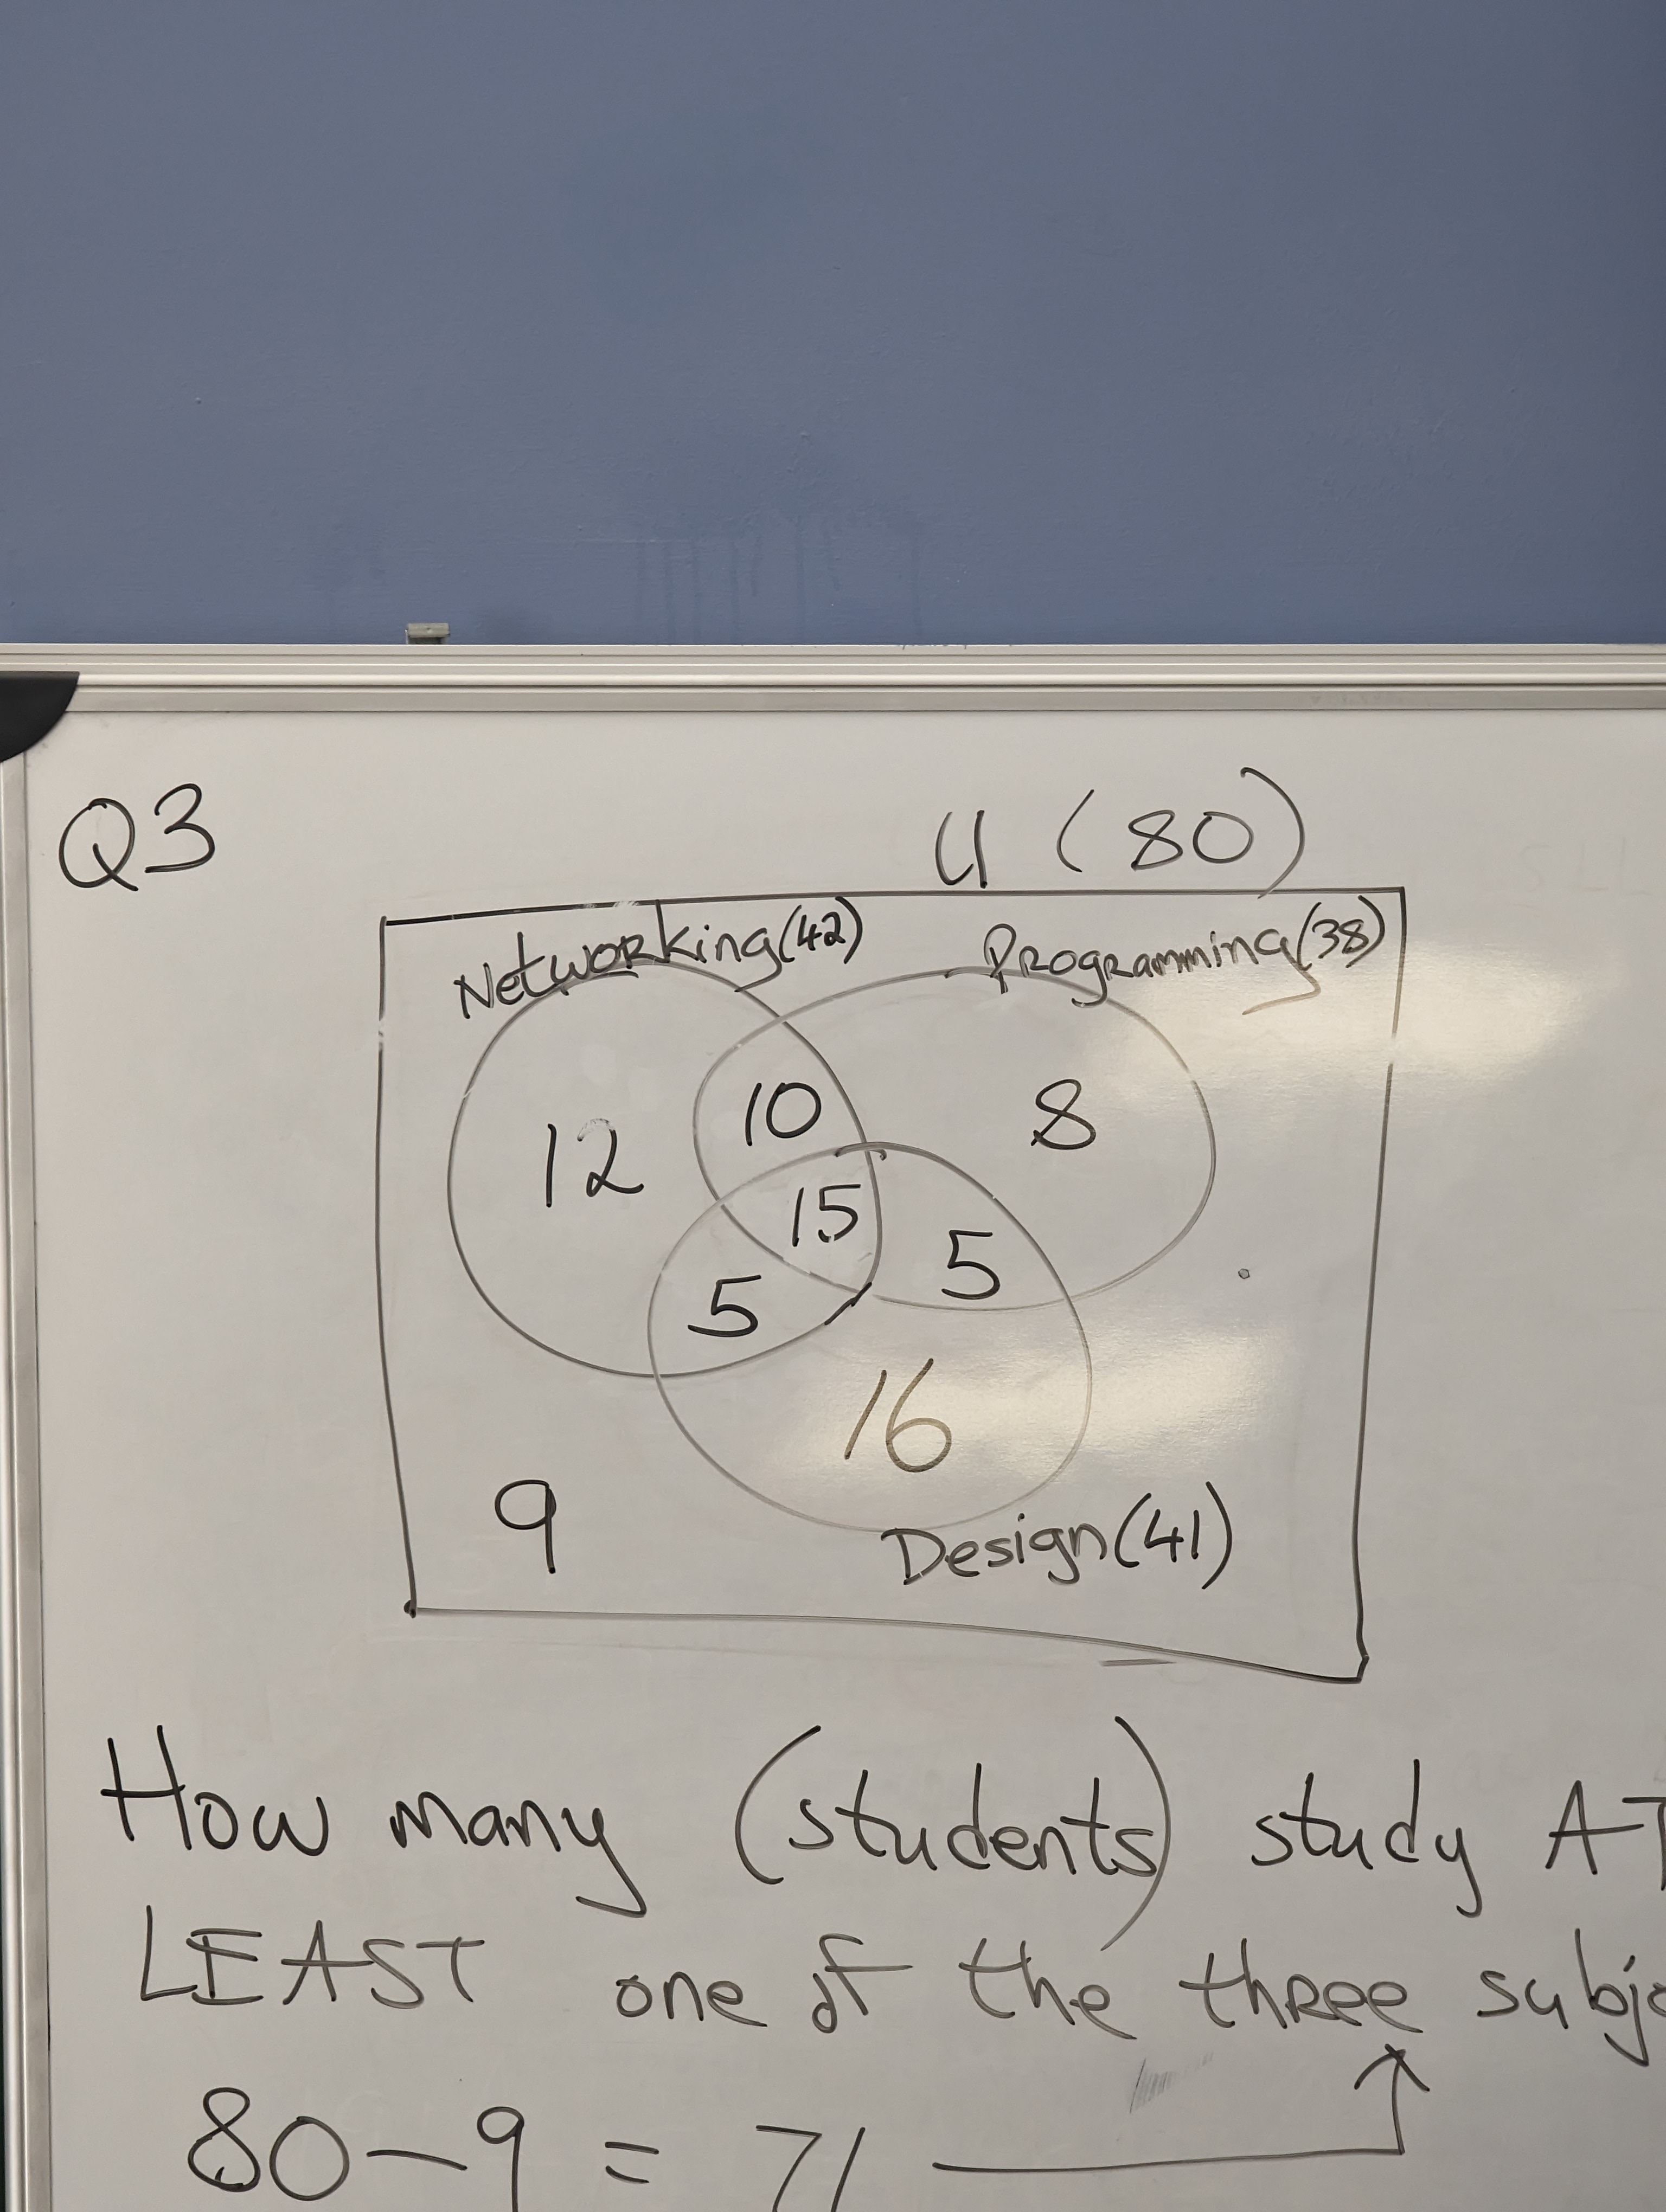 Q3
U (80)
Networking(42)
Programming(38)
10
8
12
15
5
5
16
9
Design(41)
How many (students) study AT
LEAST one of the three subje
80-9 = 71